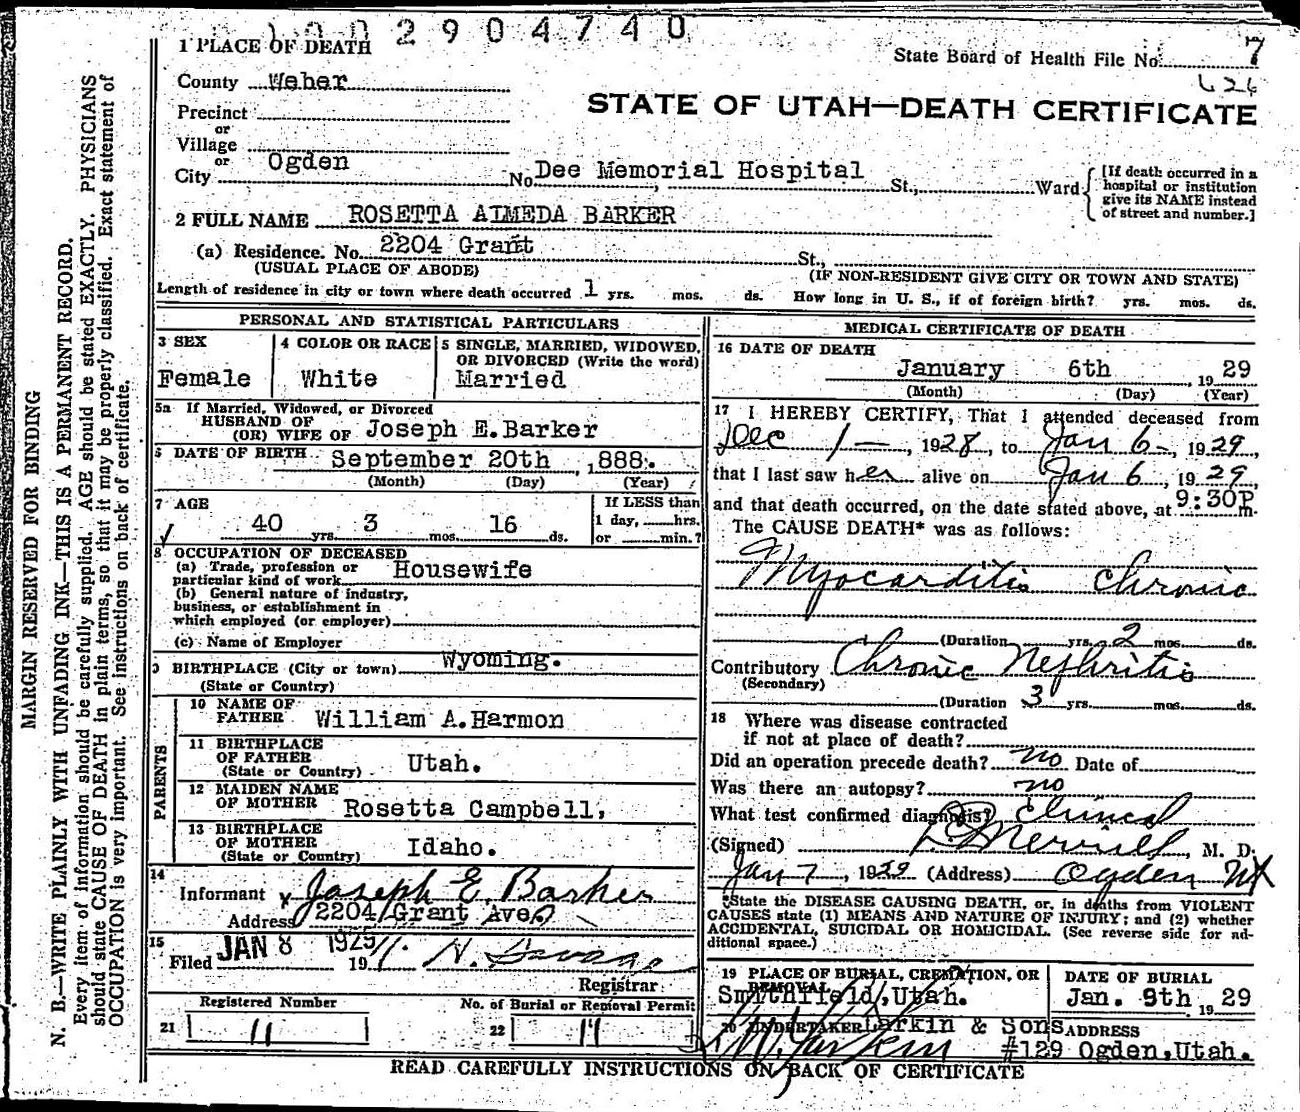 2904740
1 PLACE OF DEATH
State Board of Health File No. 7
County Weber
626
STATE OF UTAH—DEATH CERTIFICATE
Precinct
or
Village
or
City Ogden No. Dee Memorial Hospital St., Ward
[If death occurred in a
hospital or institution
give its NAME instead
of street and number.]
2 FULL NAME ROSETTA ALMEDA BARKER
(a) Residence. No. 2204 Grant St.,
(USUAL PLACE OF ABODE) (IF NON-RESIDENT GIVE CITY OR TOWN AND STATE)
Length of residence in city or town where death occurred 1 yrs. mos. ds. How long in U. S., if of foreign birth? yrs. mos. ds.
PERSONAL AND STATISTICAL PARTICULARS
3 SEX
Female
4 COLOR OR RACE
White
5 SINGLE, MARRIED, WIDOWED,
OR DIVORCED (Write the word)
Married
5a If Married, Widowed, or Divorced
HUSBAND OF
(OR) WIFE OF Joseph E.Barker
6 DATE OF BIRTH September 20th , 1888.
(Month) (Day) (Year)
7 AGE
40 yrs. 3 mos. 16 ds.
If LESS than
1 day, hrs.
or min.?
8 OCCUPATION OF DECEASED
(a) Trade, profession or
particular kind of work Housewife
(b) General nature of industry,
business, or establishment in
which employed (or employer)
(c) Name of Employer
9 BIRTHPLACE (City or town) Wyoming.
(State or Country)
PARENTS
10 NAME OF
FATHER William A.Harmon
11 BIRTHPLACE
OF FATHER
(State or Country) Utah.
12 MAIDEN NAME
OF MOTHER Rosetta Campbell,
13 BIRTHPLACE
OF MOTHER
(State or Country) Idaho.
14
Informant x Joseph E. Barker
Address 2204 Grant Ave.
15
Filed JAN 8 1929 19
H. Savage
Registrar
Registered Number
21 11
No. of Burial or Removal Permit
22 14
MEDICAL CERTIFICATE OF DEATH
16 DATE OF DEATH
January 6th , 19 29
(Month) (Day) (Year)
17 I HEREBY CERTIFY, That I attended deceased from
Dec 1— , 1928, to Jan 6—, 1929,
that I last saw her alive on Jan 6, 1929,
and that death occurred, on the date stated above, at 9:30P m.
The CAUSE DEATH* was as follows:
Myocarditis Chronic
(Duration yrs. 2 mos. ds.
Contributory Chronic Nephritis
(Secondary)
(Duration 3 yrs. mos. ds.
18 Where was disease contracted
if not at place of death?
Did an operation precede death? no Date of
Was there an autopsy? no
What test confirmed diagnosis? Clinical
(Signed) Merrill, M. D.
Jan 7, 1929 (Address) Ogden Ut
*State the DISEASE CAUSING DEATH, or, in deaths from VIOLENT
CAUSES state (1) MEANS AND NATURE OF INJURY; and (2) whether
ACCIDENTAL, SUICIDAL OR HOMICIDAL. (See reverse side for ad-
ditional space.)
19 PLACE OF BURIAL, CREMATION, OR
REMOVAL
Smithfield, Utah.
DATE OF BURIAL
Jan. 9th 19 29
20 UNDERTAKER Larkin & Sons
ADDRESS
#129 Ogden,Utah.
READ CAREFULLY INSTRUCTIONS ON BACK OF CERTIFICATE
MARGIN RESERVED FOR BINDING
N. B.—WRITE PLAINLY WITH UNFADING INK—THIS IS A PERMANENT RECORD.
Every item of information should be carefully supplied. AGE should be stated EXACTLY. PHYSICIANS
should state CAUSE OF DEATH in plain terms, so that it may be properly classified. Exact statement of
OCCUPATION is very important. See instructions on back of certificate.